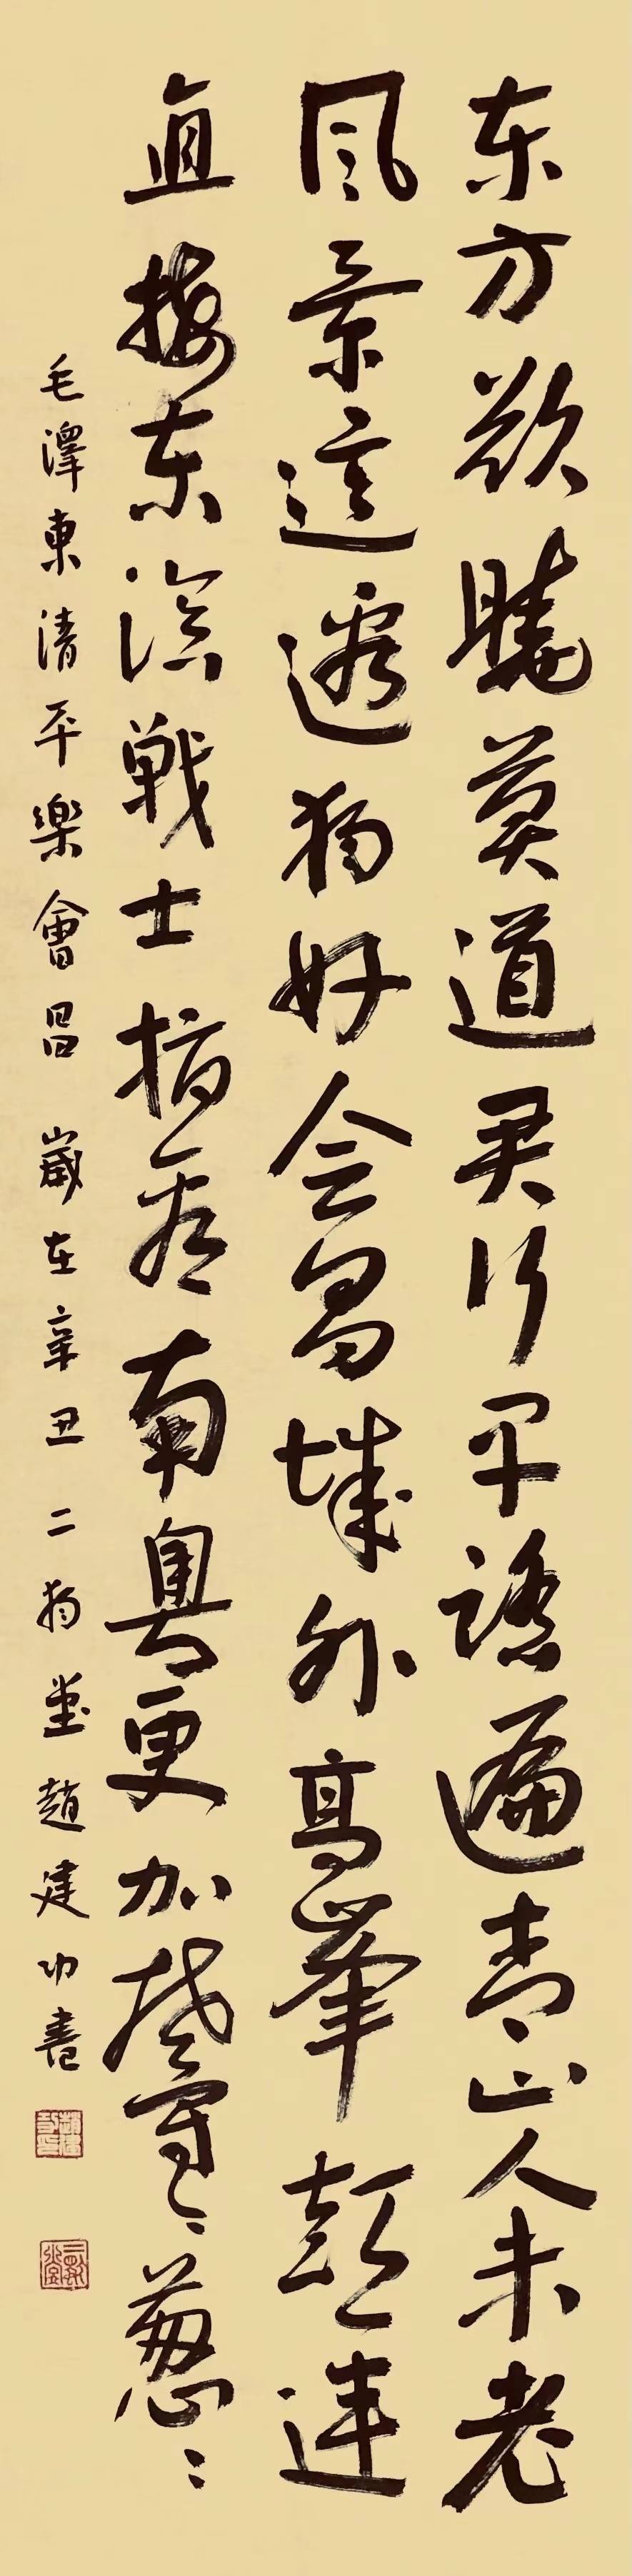 东方欲曉莫道君行早踏遍青山人未老
风景這邊独好会昌城外高峯颠连
直接东溟戦士指看南粤更加郁々葱々
毛澤東清平樂會昌 歲在辛丑二独堂趙建功書